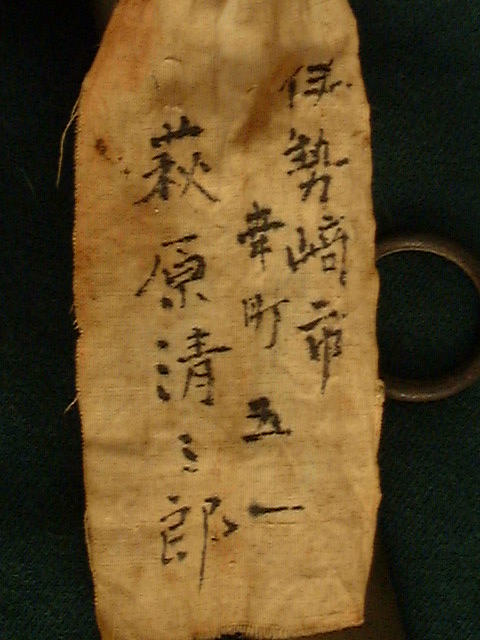 伊勢崎市
幸町五一
萩原清三郎